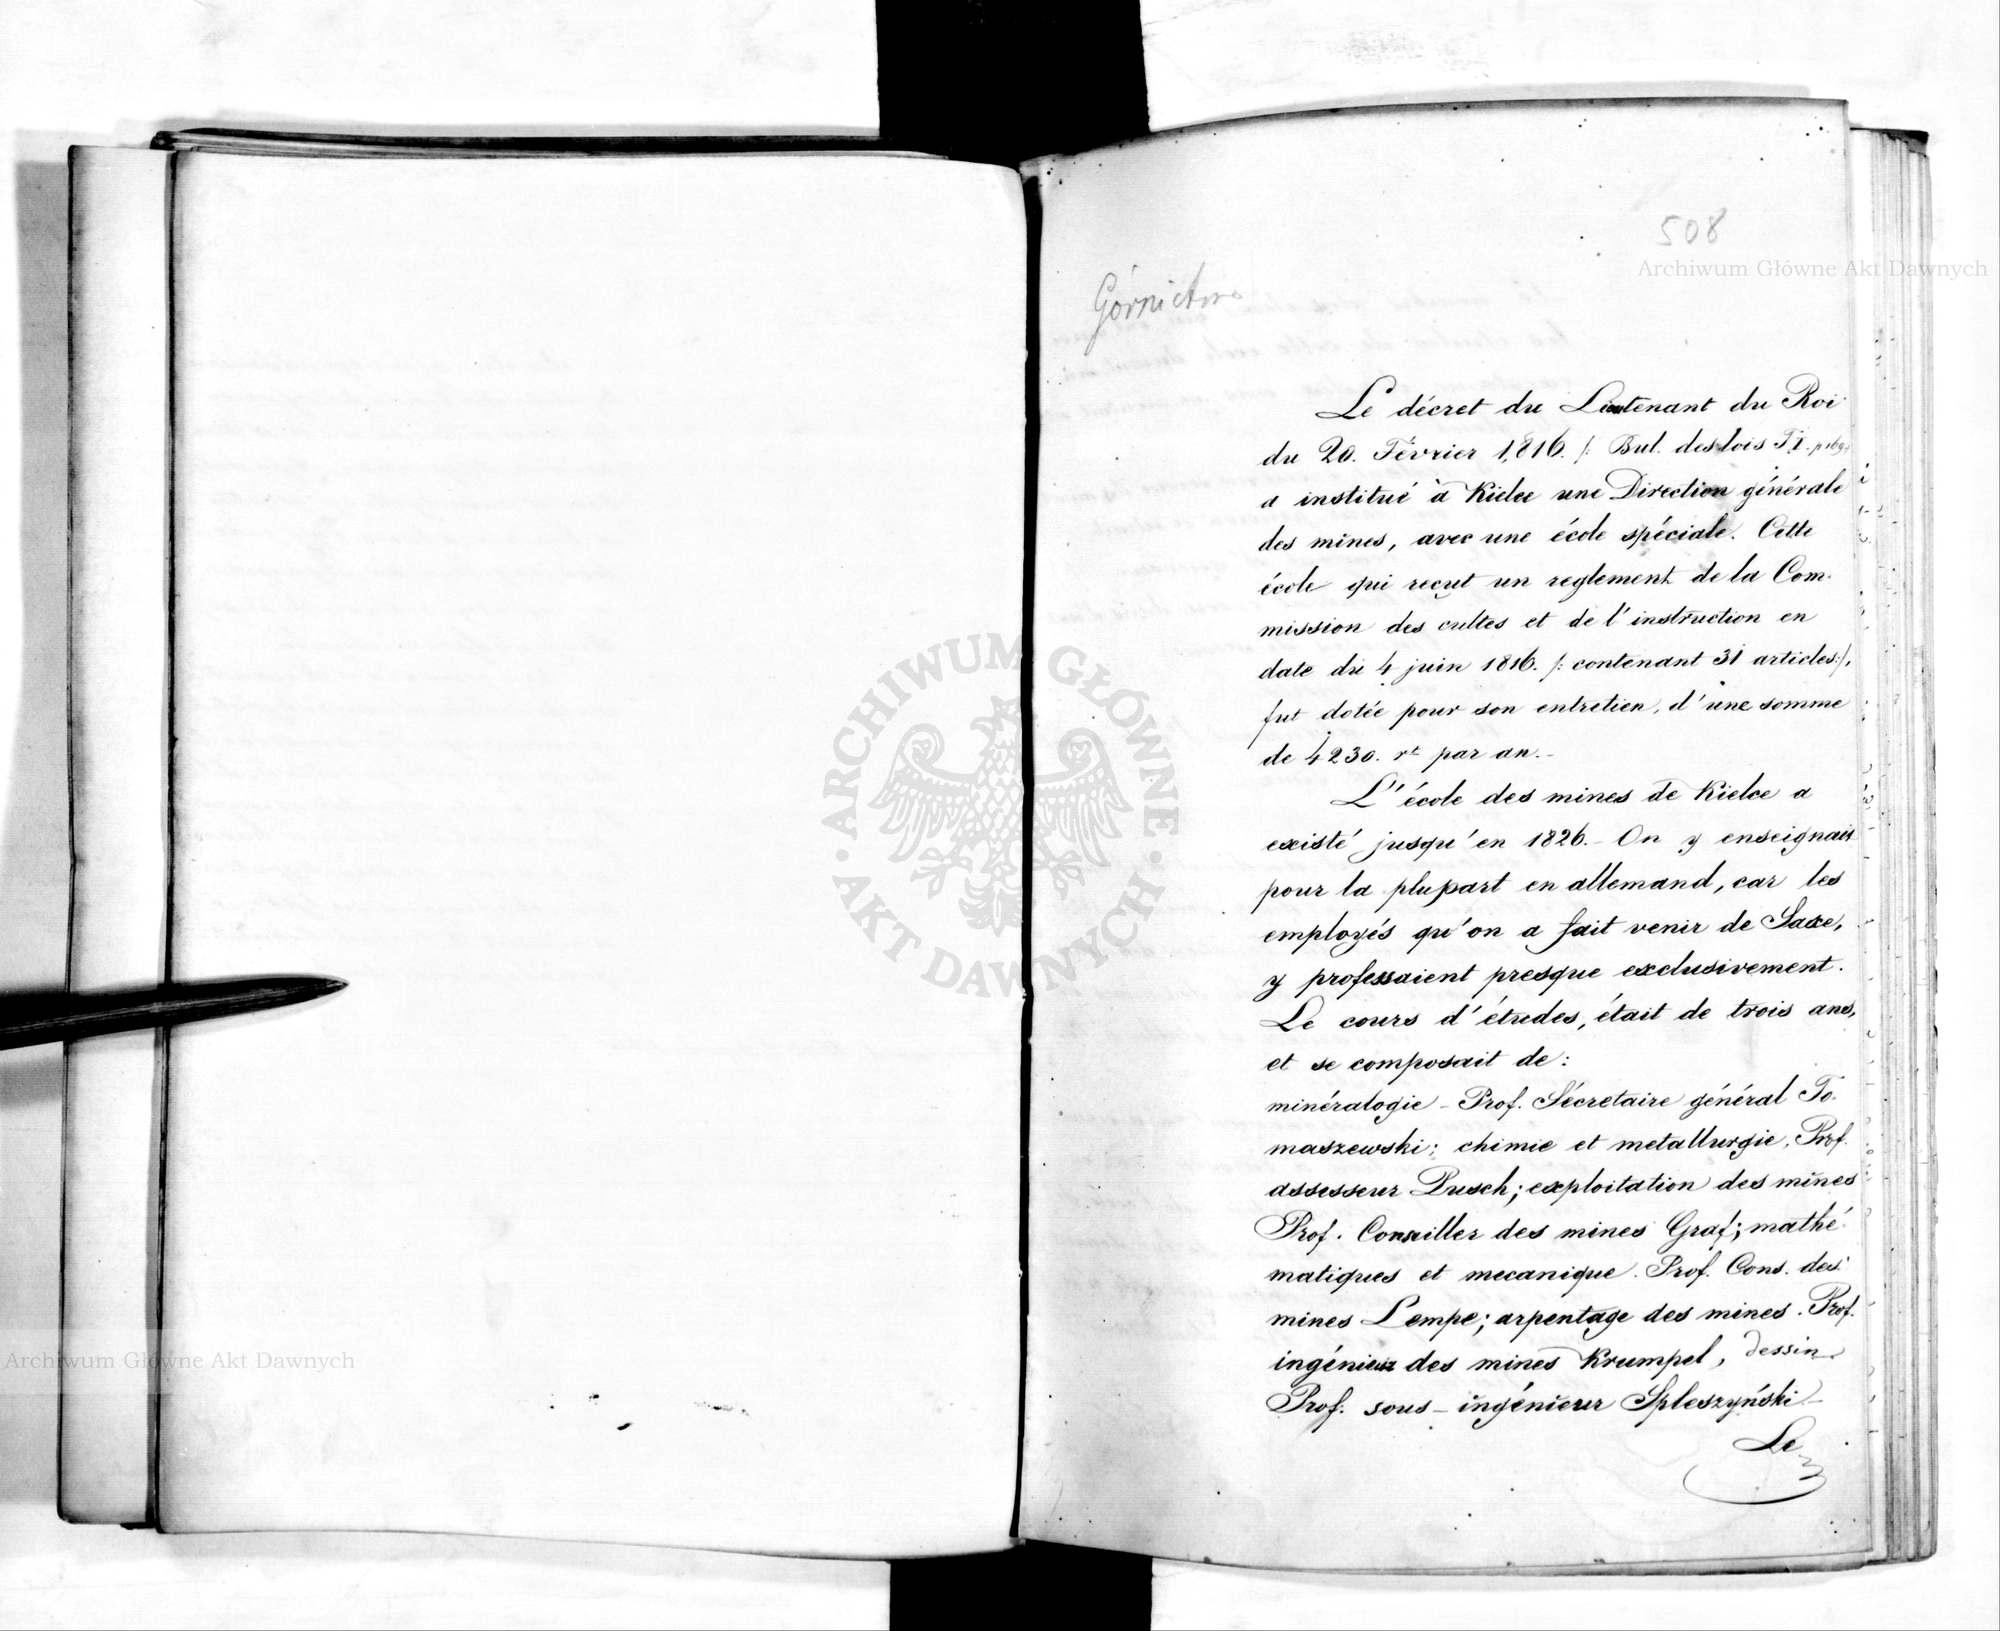 508
Archiwum Główne Akt Dawnych
Górnictwo
Le décret du Lieutenant du Roi
du 20. Février 1816. /: Bul. des lois T. I. p 169.
a institué à Kielce une Direction générale
des mines, avec une école spéciale. Cette
école qui reçut un reglement de la Com-
mission des cultes et de l'instruction en
date du 4 juin 1816. /: contenant 31 articles:/,
fut dotée pour son entretien, d'une somme
de 4230. rb par an.-
L'école des mines de Kielce a
existé jusqu'en 1826.- On y enseignait
pour la plupart en allemand, car les
employés qu'on a fait venir de Saxe,
y professaient presque exclusivement.
Le cours d'études, était de trois ans,
et se composait de:
minéralogie - Prof. Sécretaire général To-
maszewski; chimie et metallurgie, Prof.
assesseur Pusch; exploitation des mines
Prof. Conseiller des mines Graf; mathé-
matiques et mecanique. Prof. Cons. des
mines Lempe; arpentage des mines. Prof.
ingénieur des mines Krumpel, dessin
Prof. sous-ingénieur Spleszyński-
Le
ARCHIWUM GŁÓWNE
AKT DAWNYCH
Archiwum Główne Akt Dawnych